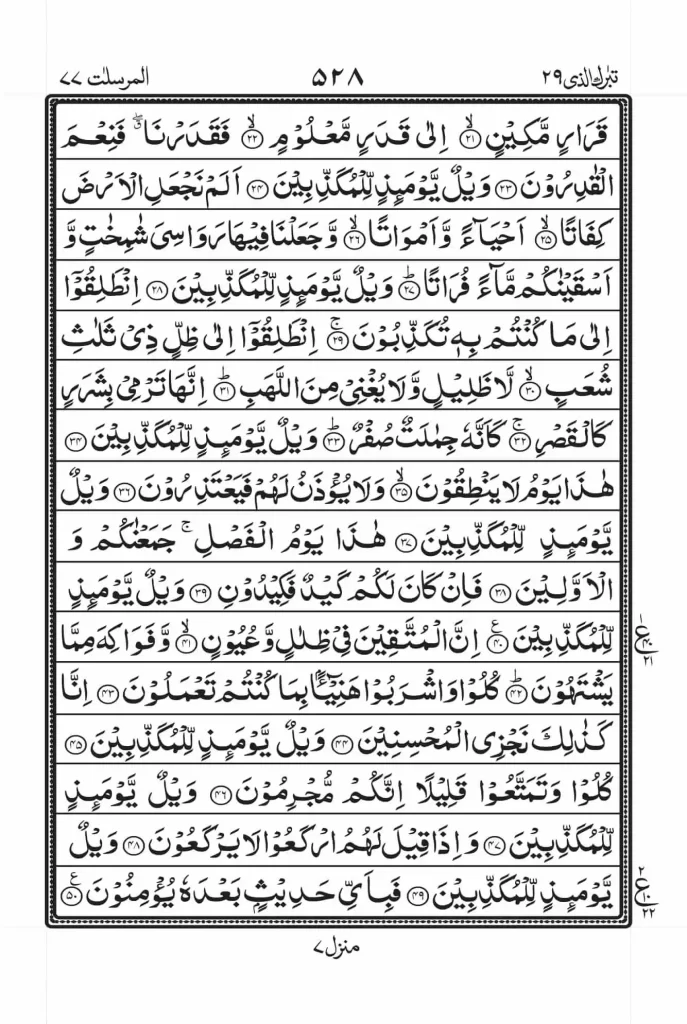 تبٰرك الذی ٢٩ ٥٢٨ المرسلٰت ٧٧
قَرَارٍ مَّكِيۡنٍ ۙ‏﴿۲۱﴾ اِلٰى قَدَرٍ مَّعۡلُوۡمٍ ۙ‏﴿۲۲﴾ فَقَدَرۡنَا ۖۗ فَنِعۡمَ
الۡقٰدِرُوۡنَ‏﴿۲۳﴾ وَيۡلٌ يَّوۡمَٮِٕذٍ لِّلۡمُكَذِّبِيۡنَ‏﴿۲۴﴾ اَلَمۡ نَجۡعَلِ الۡاَرۡضَ
كِفَاتًا ۙ‏﴿۲۵﴾ اَحۡيَآءً وَّاَمۡوَاتًا ۙ‏﴿۲۶﴾ وَّجَعَلۡنَا فِيۡهَا رَوَاسِىَ شٰمِخٰتٍ وَّ
اَسۡقَيۡنٰكُمۡ مَّآءً فُرَاتًا ؕ‏﴿۲۷﴾ وَيۡلٌ يَّوۡمَٮِٕذٍ لِّلۡمُكَذِّبِيۡنَ‏﴿۲۸﴾ اِنْطَلِقُوۡۤا
اِلٰى مَا كُنۡتُمۡ بِهٖ تُكَذِّبُوۡنَ‌ ۚ‏﴿۲۹﴾ اِنْطَلِقُوۡۤا اِلٰى ظِلٍّ ذِىۡ ثَلٰثِ
شُعَبٍ ۙ‏﴿۳۰﴾ لَّا ظَلِيۡلٍ وَّلَا يُغۡنِىۡ مِنَ اللَّهَبِ ؕ‏﴿۳۱﴾ اِنَّهَا تَرۡمِىۡ بِشَرَرٍ
كَالۡقَصۡرِ‌ ۚ‏﴿۳۲﴾ كَاَنَّهٗ جِمٰلَتٌ صُفۡرٌ ؕ‏﴿۳۳﴾ وَيۡلٌ يَّوۡمَٮِٕذٍ لِّلۡمُكَذِّبِيۡنَ‏﴿۳۴﴾
هٰذَا يَوۡمُ لَا يَنۡطِقُوۡنَ ۙ‏﴿۳۵﴾ وَلَا يُؤۡذَنُ لَهُمۡ فَيَعۡتَذِرُوۡنَ‏﴿۳۶﴾ وَيۡلٌ
يَّوۡمَٮِٕذٍ لِّلۡمُكَذِّبِيۡنَ‏﴿۳۷﴾ هٰذَا يَوۡمُ الۡفَصۡلِ‌ۚ جَمَعۡنٰكُمۡ وَ
الۡاَوَّلِيۡنَ‏﴿۳۸﴾ فَاِنۡ كَانَ لَكُمۡ كَيۡدٌ فَكِيۡدُوۡنِ‏﴿۳۹﴾ وَيۡلٌ يَّوۡمَٮِٕذٍ
لِّلۡمُكَذِّبِيۡنَ‏﴿۴۰﴾ ع اِنَّ الۡمُتَّقِيۡنَ فِىۡ ظِلٰلٍ وَّعُيُوۡنٍ ۙ‏﴿۴۱﴾ وَّفَوَاكِهَ مِمَّا
ع ٢١
يَشۡتَهُوۡنَ ؕ‏﴿۴۲﴾ كُلُوۡا وَاشۡرَبُوۡا هَنِيۡٓـــًٔا بِمَا كُنۡتُمۡ تَعۡمَلُوۡنَ‏﴿۴۳﴾ اِنَّا
كَذٰلِكَ نَجۡزِى الۡمُحۡسِنِيۡنَ‏﴿۴۴﴾ وَيۡلٌ يَّوۡمَٮِٕذٍ لِّلۡمُكَذِّبِيۡنَ‏﴿۴۵﴾
كُلُوۡا وَتَمَتَّعُوۡا قَلِيۡلًا اِنَّكُمۡ مُّجۡرِمُوۡنَ‏﴿۴۶﴾ وَيۡلٌ يَّوۡمَٮِٕذٍ
لِّلۡمُكَذِّبِيۡنَ‏﴿۴۷﴾ وَاِذَا قِيۡلَ لَهُمُ ارۡكَعُوۡا لَا يَرۡكَعُوۡنَ‏﴿۴۸﴾ وَيۡلٌ
يَّوۡمَٮِٕذٍ لِّلۡمُكَذِّبِيۡنَ‏﴿۴۹﴾ فَبِاَىِّ حَدِيۡثٍۢ بَعۡدَهٗ يُؤۡمِنُوۡنَ‏﴿۵۰﴾ ع
٢ ع ١٠ ٢٢
منزل ٧